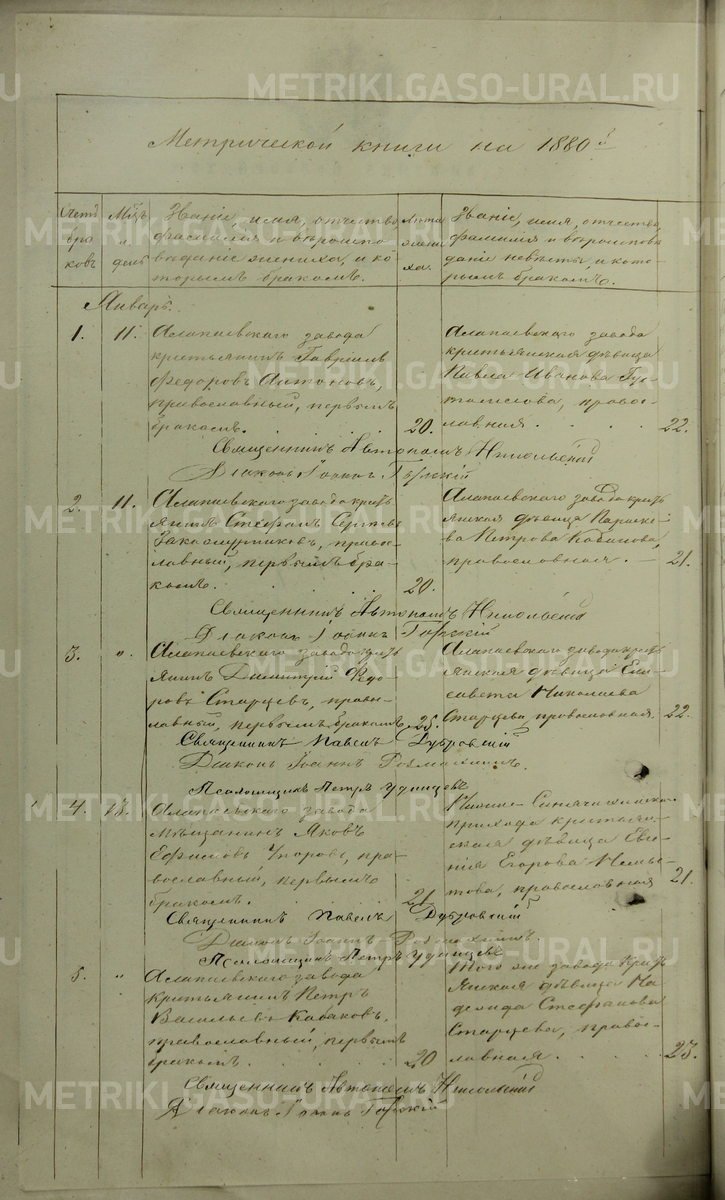 METRIKI.GASO-URAL.RU
Метрической книги на 1880 г
Счетъ браковъ
Мѣсяцъ и день
Званіе, имя, отчество,
фамилія и вѣроиспо-
вѣданіе жениха, и ко-
торымъ бракомъ.
Лѣта жениха.
Званіе, имя, отчество,
фамилія и вѣроиспов-
даніе невѣсты, и кото-
рымъ бракомъ.
Январь.
1. 11. Алапаевскаго завода
крестьянинъ Гавріилъ
Федоровъ Антоновъ,
православный, первымъ
бракомъ. 20.
Алапаевскаго завода
крестьянская дѣвица
Павла Иванова
православная. 22.
Священникъ Автономъ Никольский
Діаконъ Іоаннъ Горскій
2. 11. Алапаевскаго завода крест-
янинъ Стефанъ Сергѣевъ
православный, первымъ бра-
комъ. 20.
Алапаевскаго завода крест-
янская дѣвица Параске-
ва Петрова Кабакова,
православная. 21.
Священникъ Автономъ Никольский
Діаконъ Іоаннъ Горскій
3. " Алапаевскаго завода крест-
янинъ Димитрій Федо-
ровъ Старцевъ, право-
славный, первымъ бракомъ. 25.
Алапаевскаго завода крест-
янская дѣвица Ели-
савета Николаева
Старцева, православная. 22.
Священникъ Павелъ Дубровскій
Діаконъ Іоаннъ
Псаломщикъ Петръ Удинцевъ
4. 13. Алапаевскаго завода
Мѣщанинъ Яковъ
Ефимовъ Упоровъ, пра-
вославный, первымъ
бракомъ. 21
прихода крестьян-
ская дѣвица Евге-
нія Егорова
православная 21.
Священникъ Павелъ Дубровскій
Діаконъ Іоаннъ
Псаломщикъ Петръ Удинцевъ
5. " Алапаевскаго завода
крестьянинъ Петръ
Васильевъ Кабаковъ,
православный, первымъ
бракомъ. 20
Того же завода крест-
янская дѣвица На-
дежда Стефанова
Старцева, право-
славная. 23.
Священникъ Автономъ Никольский
Діаконъ Іоаннъ Горскій